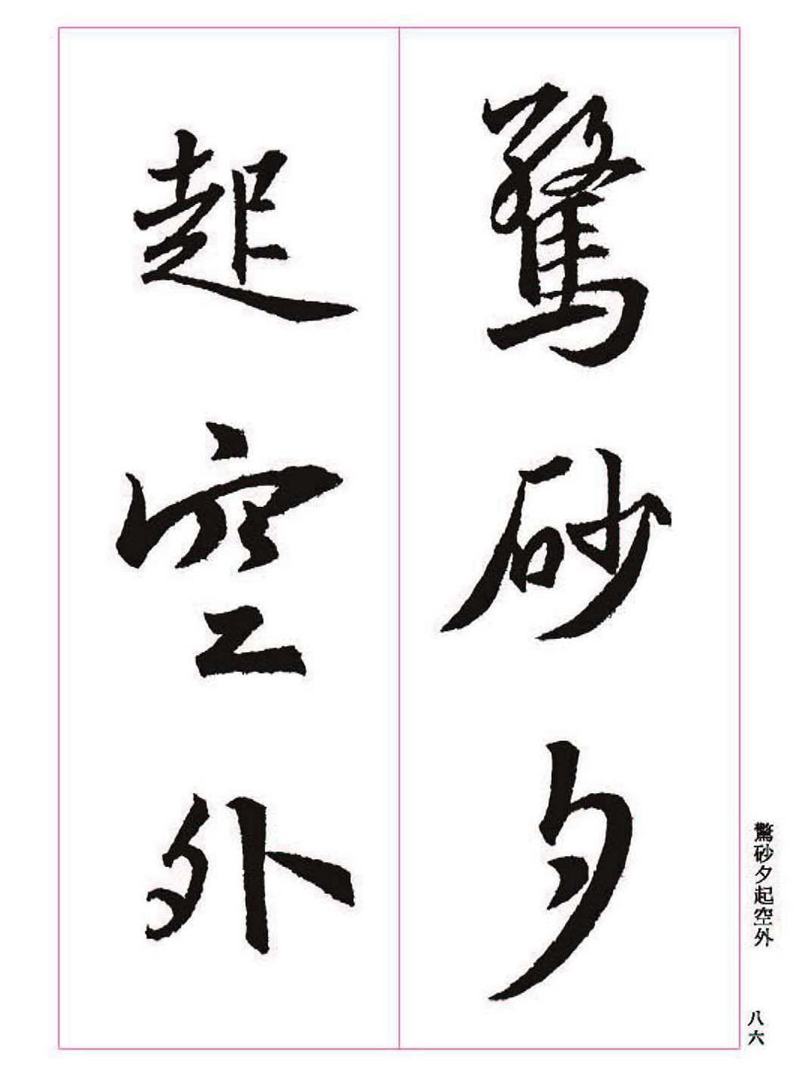 驚砂夕
起空外
驚砂夕起空外
八六